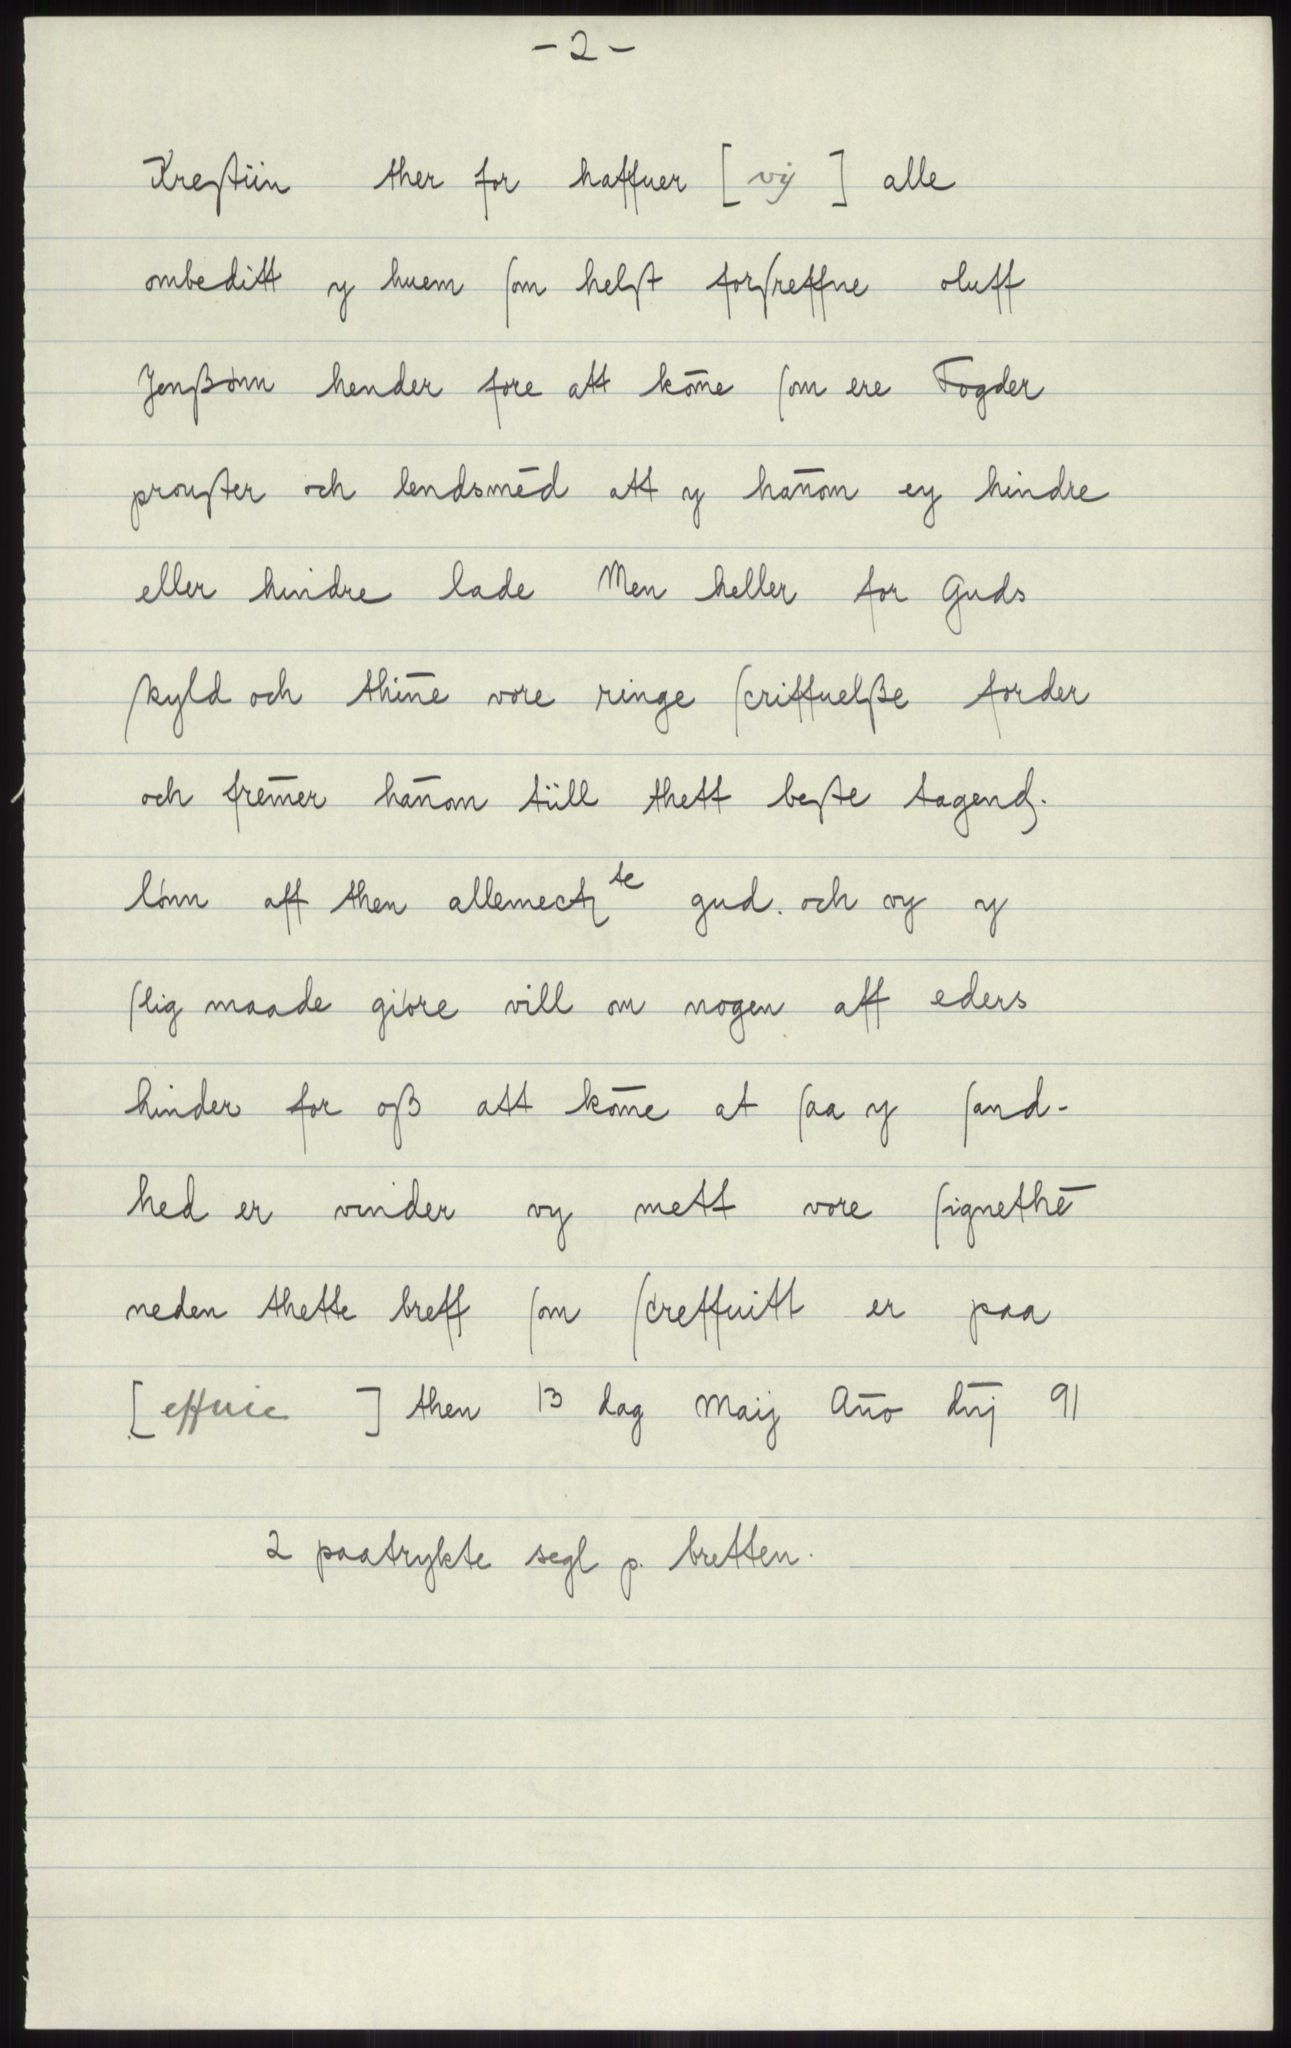 - 2 -
Kreſtiin ther for haffuer [ vij ] alle
ombeditt y huem ſom helſt forſreffne oluff
Jenßønn hender fore att kom̄e ſom ere Fogder
prouſter och lendsmēd att y han̄om ey hindre
eller hindre lade Men heller for Guds
ſkyld och thin̄e vore ringe ſcriffuelße forder
och frem̄er han̄om tiill thett beſte tagendꝭ.
lønn aff then allemectꝭ te gud. och vy y
ſlig maade giøre vill om nogen aff eders
hinder for oß att kom̄e at ſaa y ſand-
hed er vinder vy mett vore ſignethē
neden thette breff ſom ſcreffuitt er paa
[ effuie ] then 13 dag Maij An̄o dn̄j 91
2 paatrykte segl p. bretten.